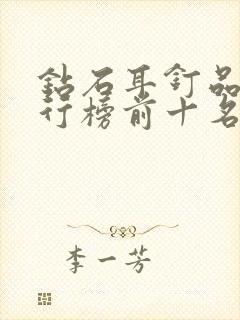 鉆石耳釘品
行榜前十名
李一芳